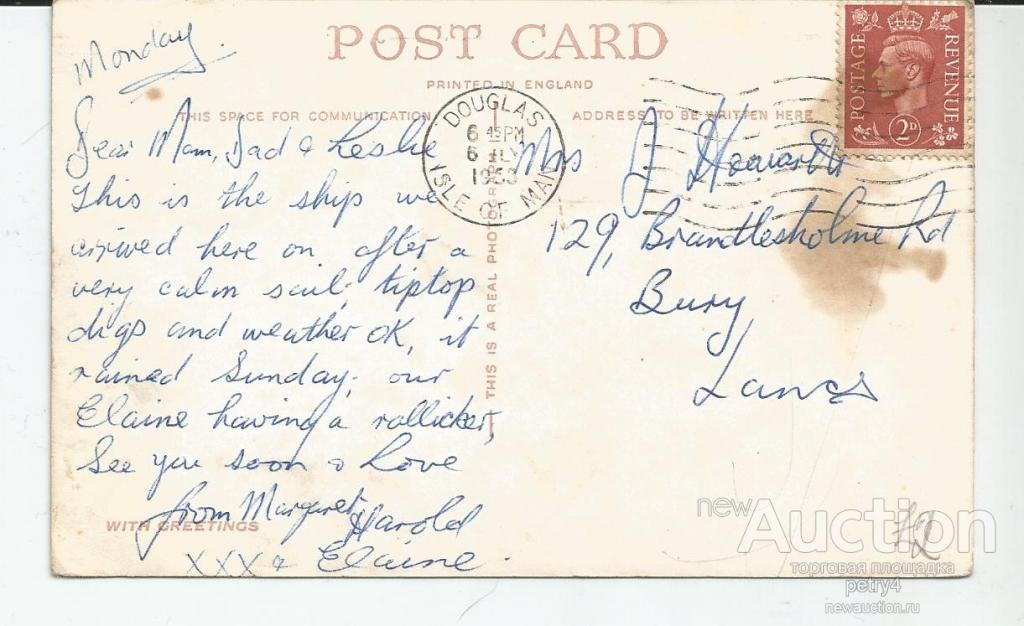 Monday
POST CARD
PRINTED IN ENGLAND
THIS SPACE FOR COMMUNICATION
ADDRESS TO BE WRITTEN HERE
POSTAGE
REVENUE
2D
DOUGLAS
6 45PM
6 JLY
1953
ISLE OF MAN
Dear Mam, Dad & Leslie
This is the ship we
arrived here on after a
very calm sail; tiptop
digs and weather OK, it
rained Sunday. our
Elaine having a rollicker,
See you soon & Love
from Margaret, Harold
xxx & Elaine.
WITH GREETINGS
THIS IS A REAL PHOTOGRAPH
Mrs J Howarth
129, Brandlesholme Rd
Bury
Lancs
£2
newAuction
торговая площадка
petry4
newauction.ru